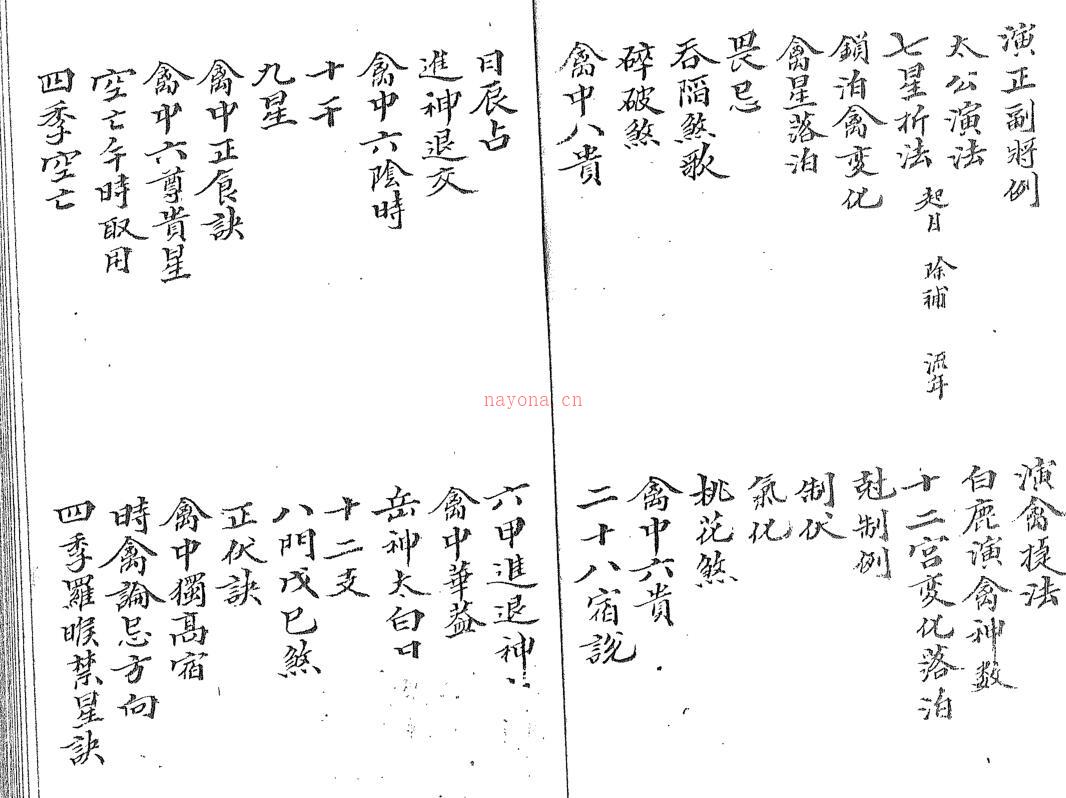 演正副將例
太公演法
七星折法 起日 除補 流年
鎖泊禽变化
禽星落泊
畏忌
吞陷煞歌
碎破煞
禽中八貴
演禽捷法
白鹿演禽神数
十二宮变化落泊
尅制例
制伏
氣化
桃花煞
禽中六貴
二十八宿説
日辰占
進神退交
禽中六陰時
十干
九星
禽中正食訣
禽中六尊貴星
空亡午時取用
四季空亡
六甲進退神
禽中華蓋
岳神太白
十二支
八門戊己煞
正伏訣
禽中獨髙宿
時禽論忌方向
四季羅睺禁星訣
nayona cn